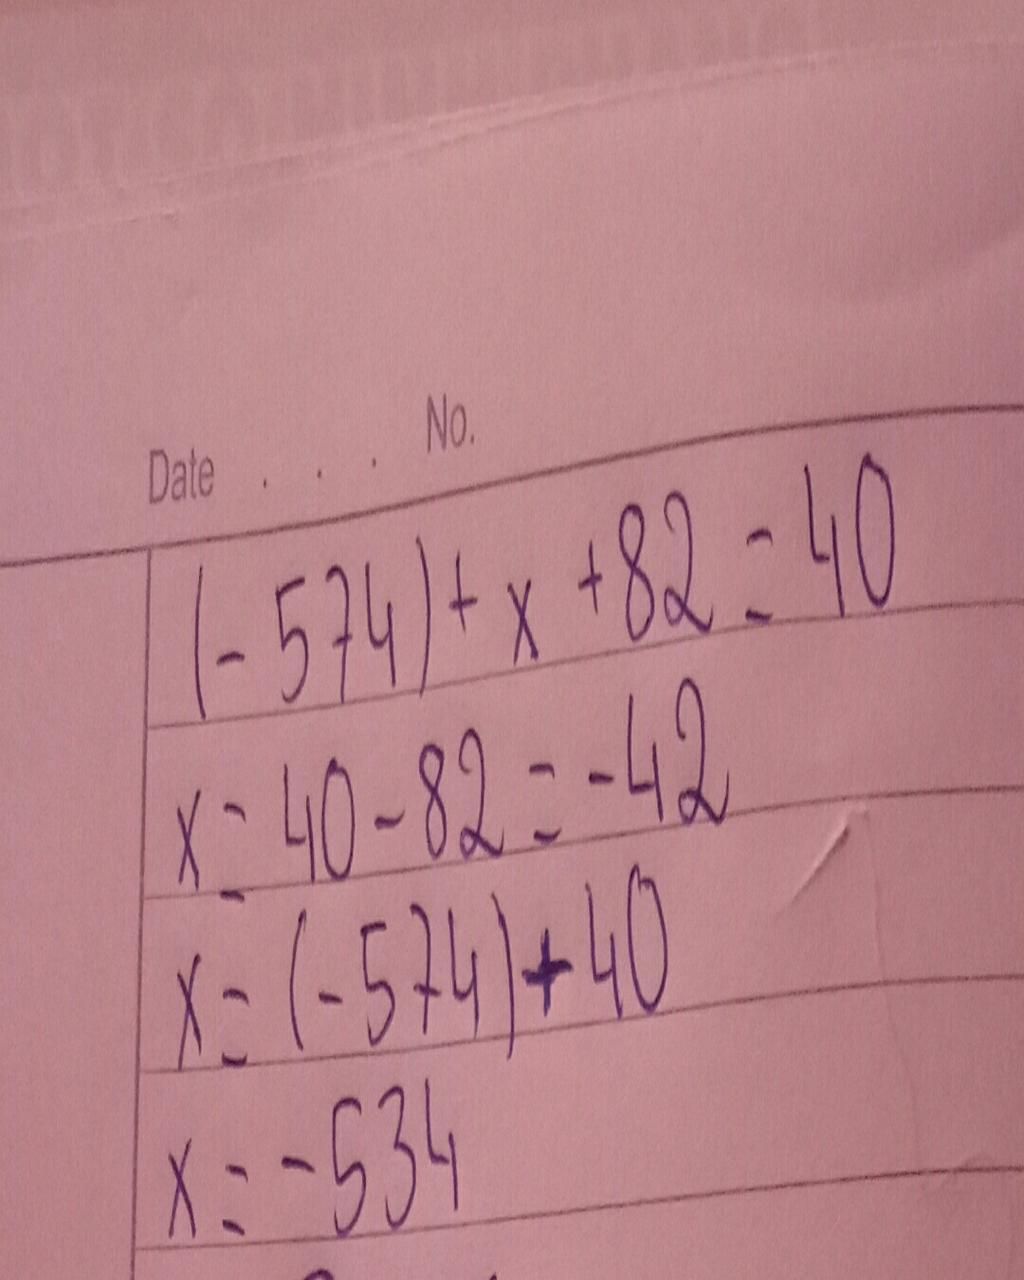 Date . . . No.
(-574) + x + 82 = 40
x = 40 - 82 = -42
x = (-574) + 40
x = -534